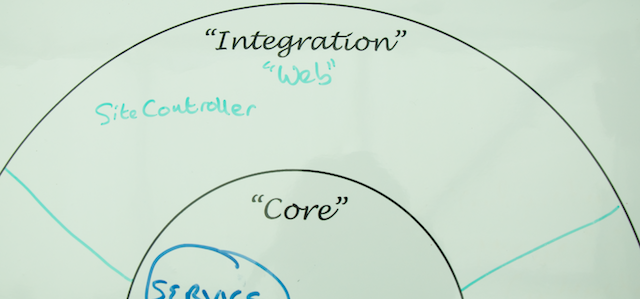 “Integration”
“Web”
SiteController
“Core”
SERVICE